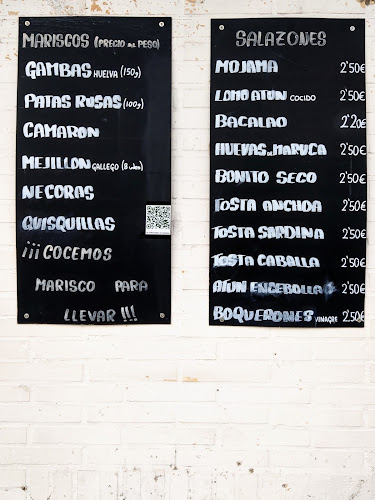 MARISCOS (PRECIO AL PESO)
GAMBAS HUELVA (150g)
PATAS RUSAS (100g)
CAMARON
MEJILLON GALLEGO (8 uds)
NECORAS
QUISQUILLAS
¡¡¡COCEMOS
MARISCO PARA
LLEVAR!!!
SALAZONES
MOJAMA 2'50€
LOMO ATUN COCIDO 2'50€
BACALAO 2'20€
HUEVAS DE MARUCA 2'50€
BONITO SECO 2'50€
TOSTA ANCHOA 2'50€
TOSTA SARDINA 2'50€
TOSTA CABALLA 2'50€
ATUN ENCEBOLLAO 2'50€
BOQUERONES VINAGRE 2'50€